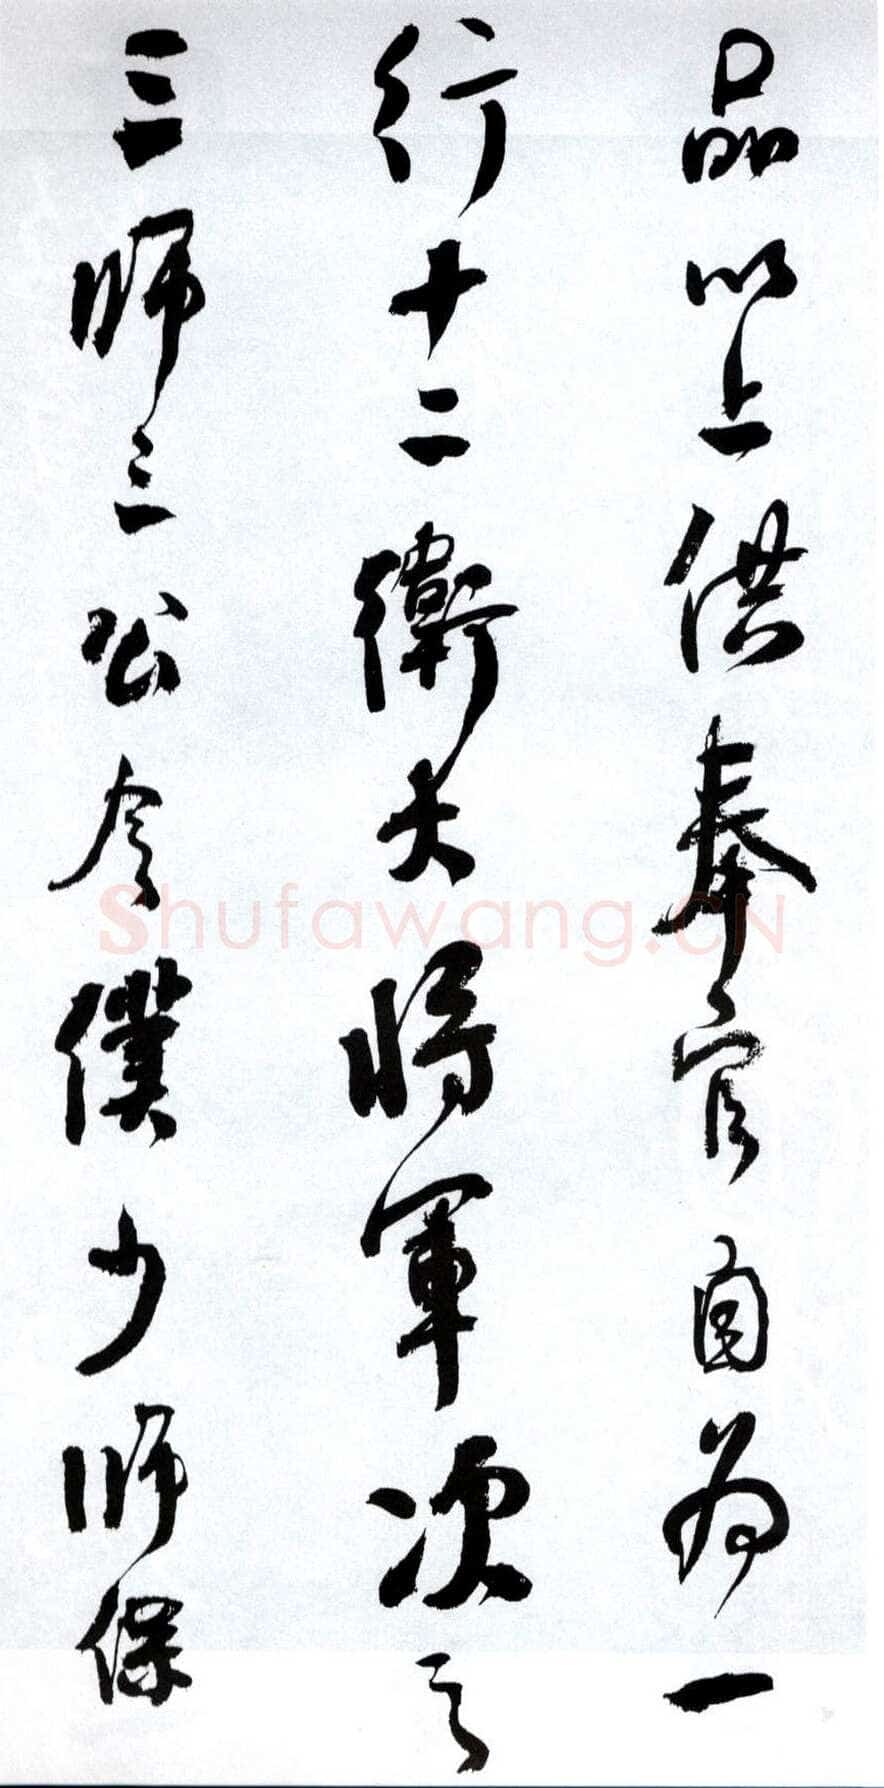 品以上供奉官自為一
行十二衛大將軍次之
三師三公令僕少師保
Shufawang.CN